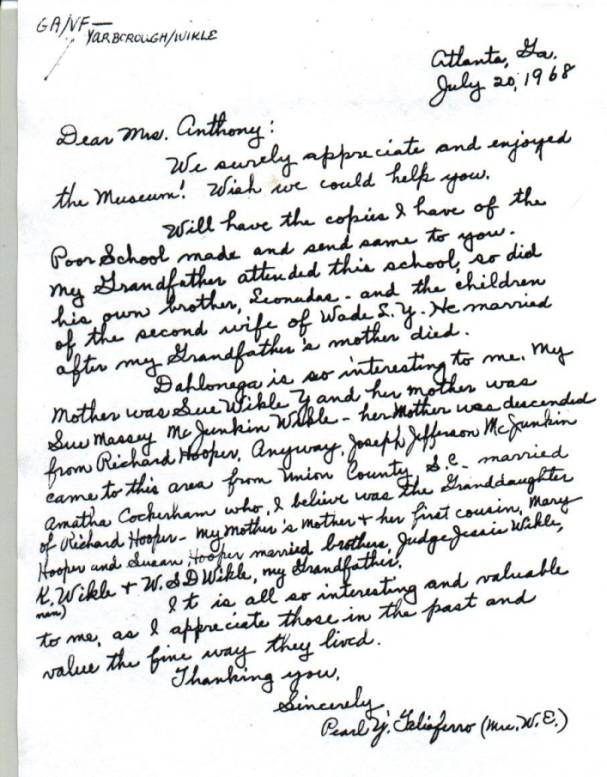 GA/VF—
YARBOROUGH/WIKLE
Atlanta, Ga.
July 20, 1968
Dear Mrs. Anthony:
We surely appreciate and enjoyed
the Museum! Wish we could help you.
Will have the copies I have of the
Poor School made and send same to you.
My Grandfather attended this school, so did
his own brother, Leonudas - and the children
of the second wife of Wade S. Y. - He married
after my Grandfather's mother died.
Dahlonega is so interesting to me. My
Mother was Sue Wikle Y and her mother was
Sue Massey McJunkin Wikle - her Mother was descended
from Richard Hooper. Anyway, Joseph Jefferson McJunkin
came to this area from Union County S.C. - married
Amatha Cockerham who, I believe was the Granddaughter
of Richard Hooper - My Mother's Mother + her first cousin, Mary
Hooper and Susan, Hooper married brothers, Judge Jessie Wikle,
K. Wikle + W. S D Wikle, my Grandfather.
It is all so interesting and valuable
to me, as I appreciate those in the past and
value the fine way they lived.
Thanking you,
Sincerely
Pearl Y. Taliaferro (Mrs. W. E.)